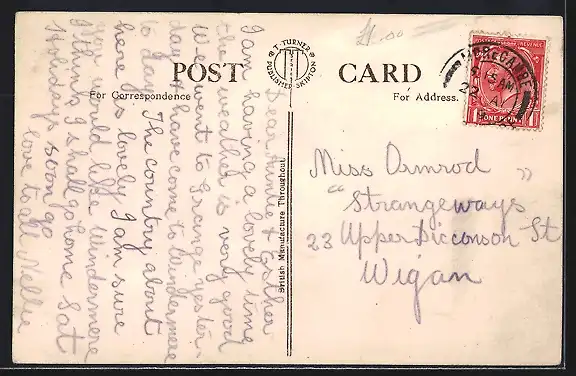 £1.00
POST CARD
T. TURNER
PUBLISHER SKIPTON
For Correspondence
For Address.
British Manufacture Throughout.
POSTAGE REVENUE
1 ONE PENNY 1
MORECAMBE
AM
22
Dear Auntie & Esther
I am having a lovely time
the weather is very good
We went to Grange yester-
day & have come to Windermere
to day. The country about
here is lovely I am sure
you would like Windermere
I think I shall go home Sat
Holidays soon go
love to all Nellie
Miss Ormrod
"Strangeways"
23 Upper Dicconson St
Wigan